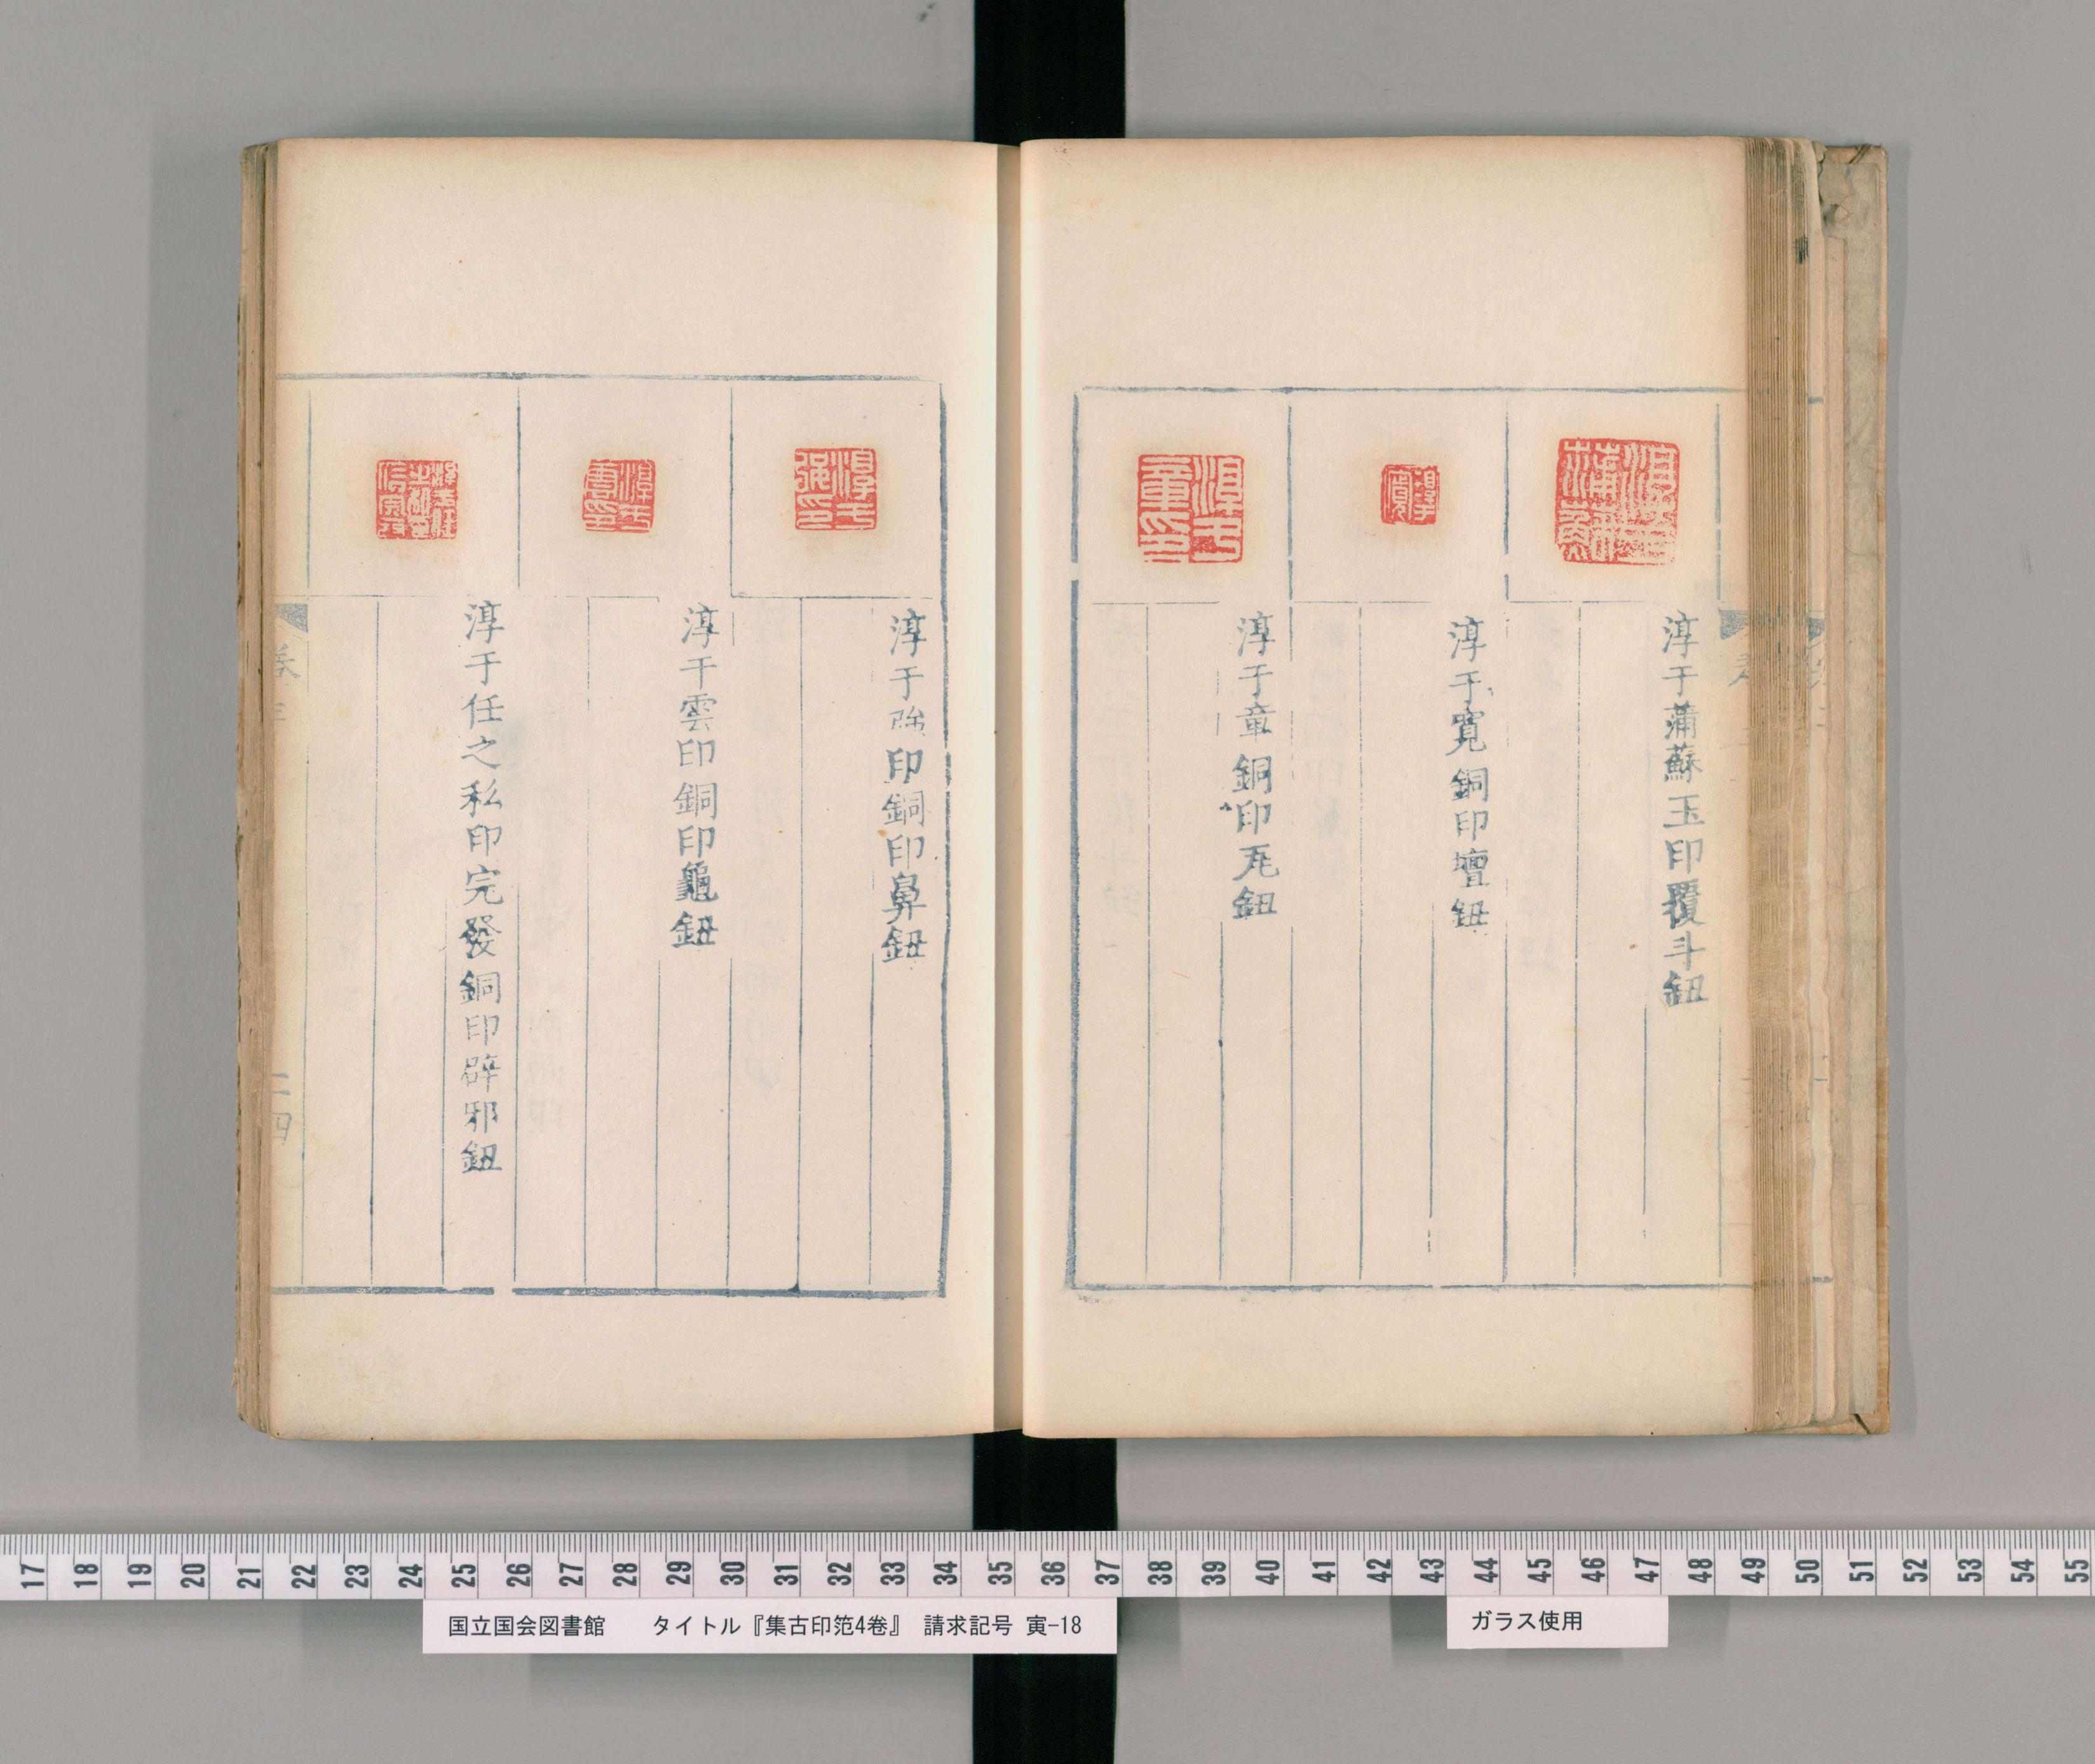 淳于蒲蘇玉印覆斗鈕
淳于寬銅印壇鈕
淳于章銅印瓦鈕
淳于強印銅印鼻鈕
淳于雲印銅印龜鈕
淳于任之私印完發銅印辟邪鈕
卷三
二四
17 18 19 20 21 22 23 24 25 26 27 28 29 30 31 32 33 34 35 36 37 38 39 40 41 42 43 44 45 46 47 48 49 50 51 52 53 54 55
国立国会図書館 タイトル『集古印笵4巻』 請求記号 寅-18
ガラス使用